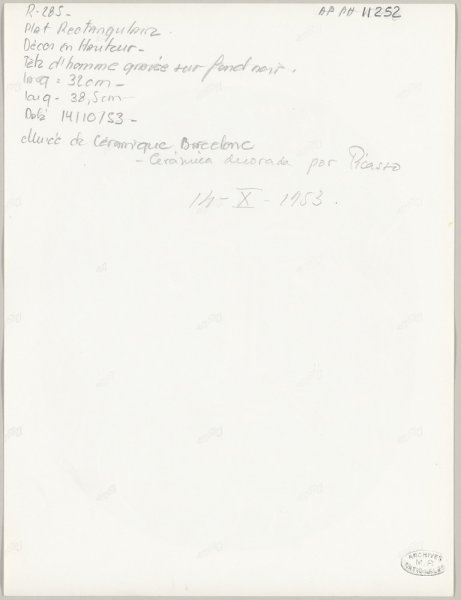 R-285-
AP PH 11252
Plat Rectangulaire.
Décor en Hauteur-
Tête d'homme gravée sur fond noir.
larg = 32cm-
long - 38,5cm-
Daté 14/10/53-
Musée de Céramique Barcelone
- Cerámica decorada por Picasso
14-X-1953.
ARCHIVES
M.P.
NATIONALES